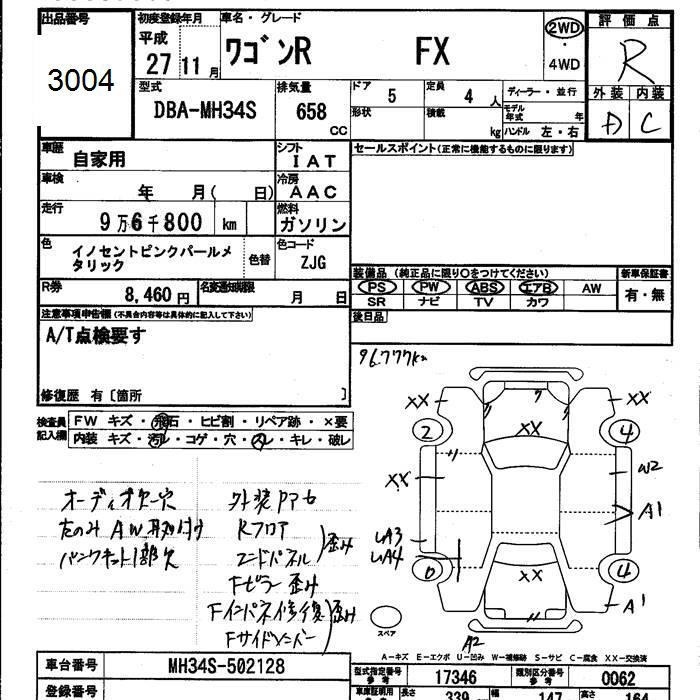 出品番号
3004
初度登録年月
平成
27 11月
車名・グレード
ワゴンR FX
2WD
・
4WD
評価点
R
外装 内装
D C
型式
DBA-MH34S
排気量
658
CC
ドア
5
定員
4 人
形状
積載
kg
ディーラー・並行
モデル年式 年
ハンドル 左・右
車歴
自家用
シフト
IAT
車検
年 月( 日)
冷房
AAC
走行
9万6千800 km
燃料
ガソリン
色
イノセントピンクパールメ
タリック
色替
色コード
ZJG
R券
8,460円
名変通知期限
月 日
セールスポイント(正常に機能するものに限ります)
装備品 (純正品に限り○をつけてください)
新車保証書
PS PW ABS エアB AW
有・無
SR ナビ TV カワ
後日品
注意事項申告欄(不具合内容等は具体的に記入して下さい)
A/T点検要す
修復歴 有〔箇所 〕
96.777km
検査員
記入欄
FW キズ・飛石・ヒビ割・リペア跡・×要
内装 キズ・汚レ・コゲ・穴・スレ・キレ・破レ
オーディオ欠穴
左のみAW取付け
パンクキット1部欠
外装
Rフロア
エンドパネル
歪み
Fピラー歪み
Fインパネ修復
Fサイドメンバー
歪み
XX
XX
XX
2
4
XX
W2
A1
UA3
UA4
0
4
XX
A1
A2
スペア
A-キズ E-エクボ U-凹み W-補修跡 S-サビ C-腐食 XX-交換済
車台番号
MH34S-502128
登録番号
型式指定番号
参考
17346
類別区分番号
参考
0062
車庫証明用
参考
長さ
339
幅
147
高さ
164